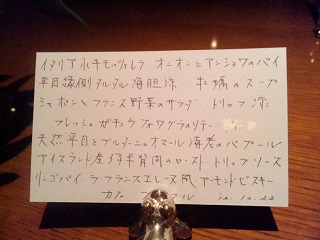 イタリア水牛モッツァレラ・オニオンとアンショワのパイ
平目 縁側 タルタル 海胆添・牡蠣のスープ
ジャボンとフランス野菜のサラダ・トリュフ添
フレッシュガチョウフォワグラのソテー
天然平目とブルターニュオマール海老のバプール
アイスランド産仔羊背肉のロースト・トリュフソース
リンゴパイ・ラ・フランス エレーヌ風 アーモンド・ビスキー